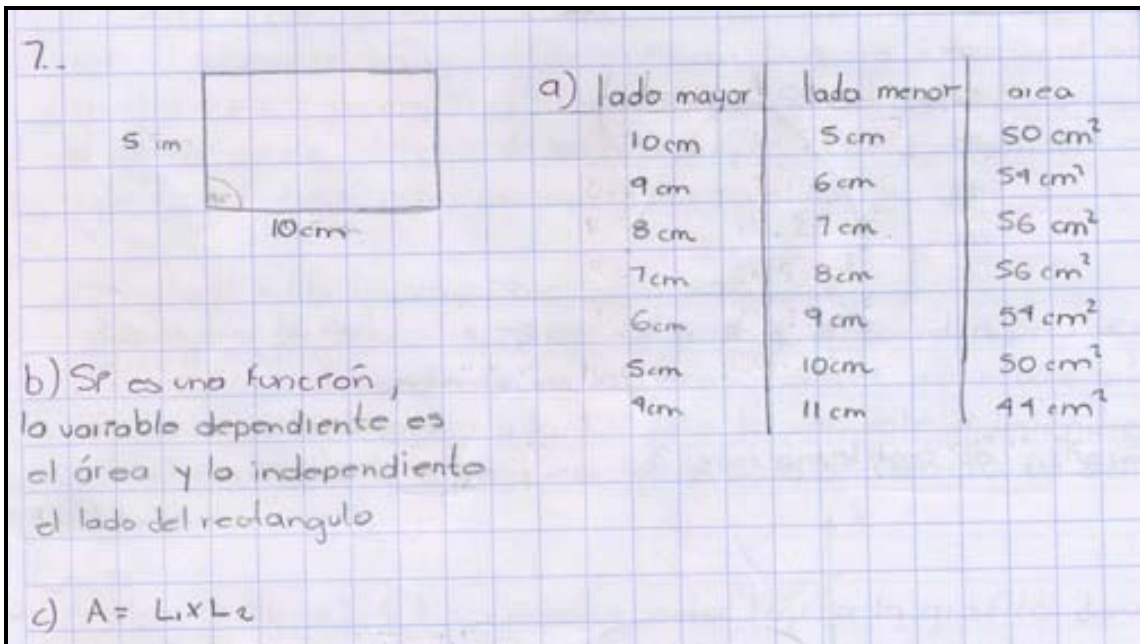 7.-
5 cm
10cm
a) lado mayor lado menor area
10cm 5cm 50 cm²
9 cm 6cm 54 cm²
8 cm 7 cm 56 cm²
7cm 8cm 56 cm²
6cm 9 cm 54 cm²
5cm 10cm 50 cm²
4cm 11 cm 44 cm²
b) Si es una función,
la variable dependiente es
el área y la independiente
el lado del rectangulo
c) A = L₁ x L₂